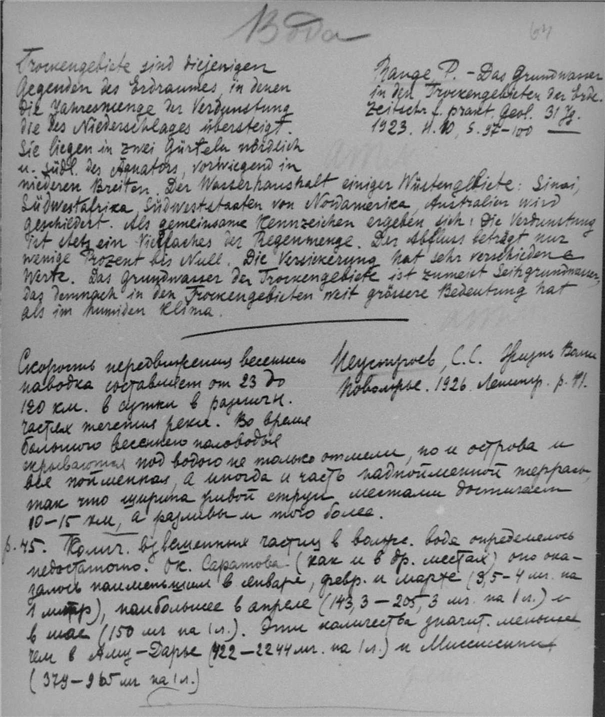 Вода
64
Trockengebiete sind diejenigen
Gegenden des Erdraumes, in denen
die Jahresmenge der Verdunstung
die des Niederschlages übersteigt.
Sie liegen in zwei Gürteln nördlich
u. südl. des Äquators, vorwiegend in
niederen Breiten. Der Wasserhaushalt einiger Wüstengebiete: Sinai,
Südwestafrika, Südweststaaten von Nordamerika, Australien wird
geschildert. Als gemeinsame Kennzeichen ergeben sich: Die Verdunstung
ist stets ein Vielfaches der Regenmenge. Der Abfluss beträgt nur
wenige Prozent bis Null. Die Versickerung hat sehr verschiedene
Werte. Das Grundwasser der Trockengebiete ist zumeist
das demnach in den Trockengebieten weit grössere Bedeutung hat
als im humiden Klima.
Range, P. – Das Grundwasser
in den Trockengebieten der Erde.
Zeitschr. f. prakt. Geol. 31 Jg.
1923. H. 10, S. 97–100
Скорость передвижения весеннего
паводка составляет от 23 до
120 км. в сутки в различн.
частях течения реки. Во время
большого весеннего половодья
скрываются под водою не только отмели, но и острова и
вся пойменная, а иногда и часть надпойменной террасы,
так что ширина живой струи местами достигает
10–15 км, а разливы и того более.
Неуструев, С.С.
Поволжье. 1926. Ленингр. р. 41.
р. 45. Колич. взвешенных частиц в волжс. вода определялось
недостаточно. Ок. Саратова (как и в др. местах) оно ока-
залось наименьшим в январе, февр. и марте (3,5–4 мг. на
1 литр), наибольшее в апреле (143,3–205,3 мг. на 1 л.) и
в мае (150 мг на 1 л.). Эти количества значит. меньше,
чем в Аму-Дарье (422–2244 мг. на 1 л.) и Миссисипи
(379–965 мг на 1 л.)